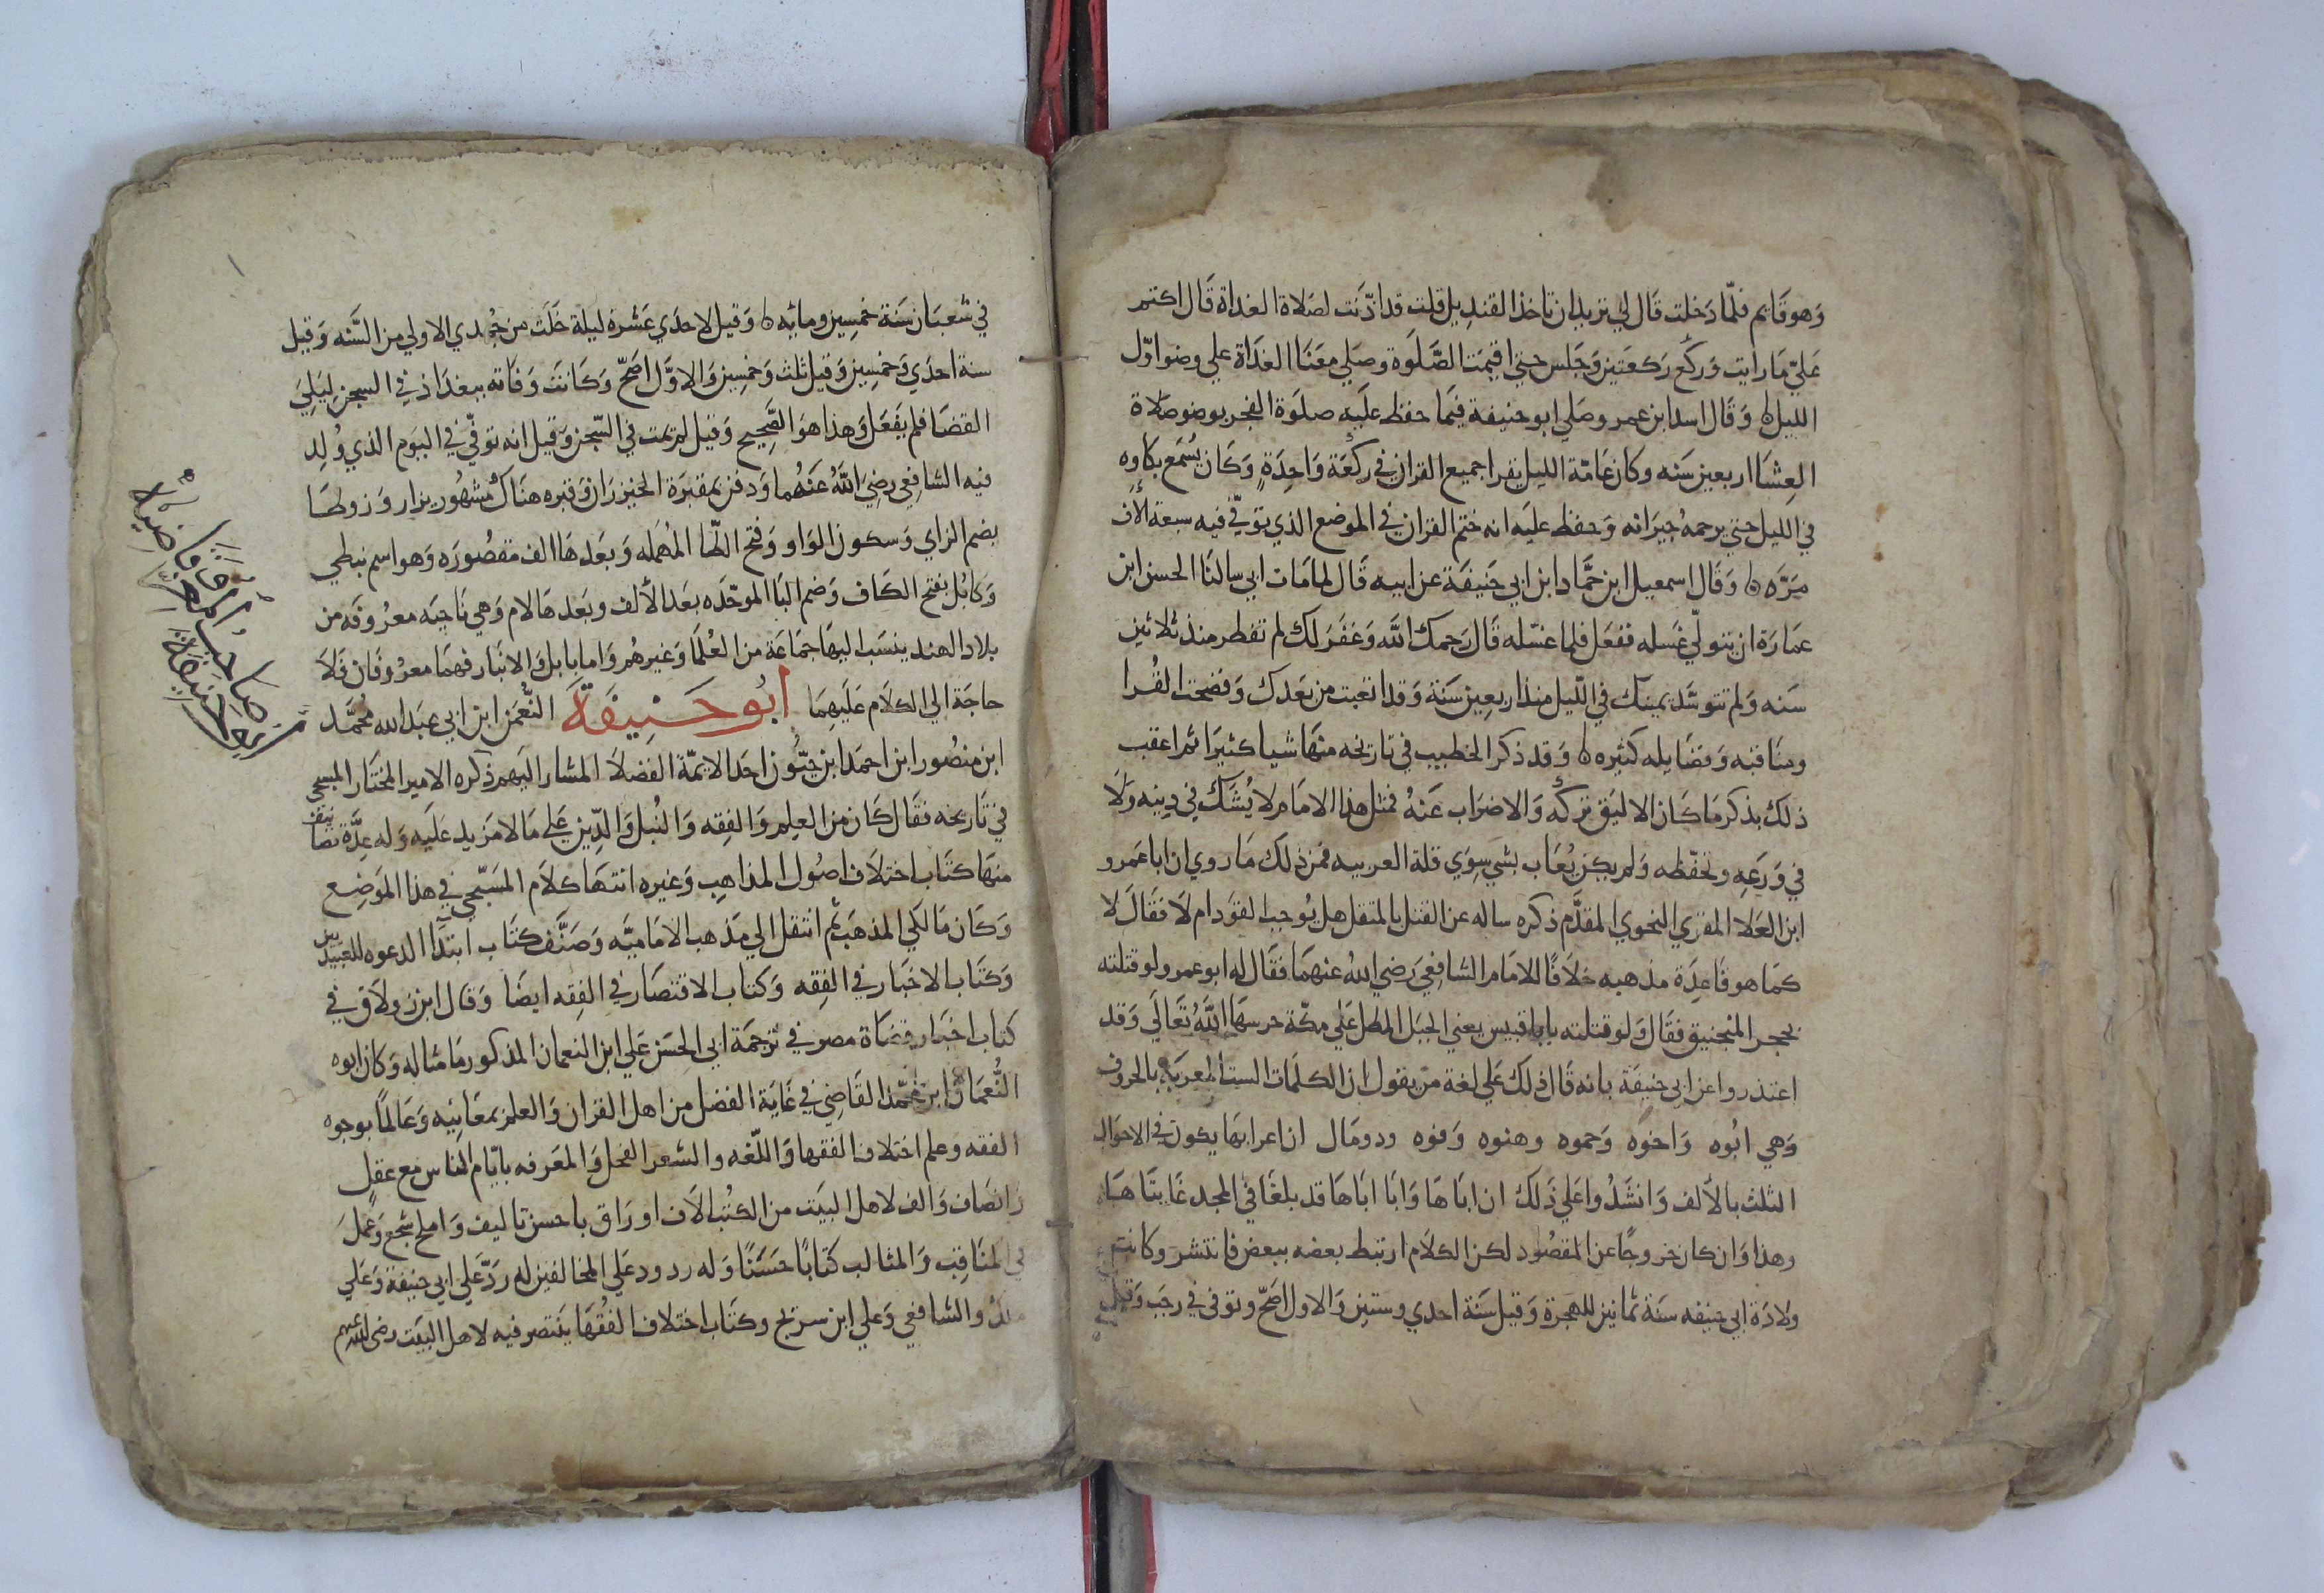 وَهو قَايم فلمّا دَخلت قَال لي تريد ان تاخذ القنديل قلت قد اذّنت لصَلاة الغداة قَال اكتم
عَليّ مَا رايت وَركع ركعَتين وَجَلس حتي اقيمَت الصَّلَوة وصَلي معَنَا الغدَاة علي وضو اوّل
الليل ۞ وَقَال اسد ابن عمر وصَلي ابو حنيفة فيمَا حفظ عليَه صلوَة الفجر بوضو صَلاة
العِشَا اربعين سَنه وكان عَامّة الليل يقرا جميع القران في ركعَة وَاحِدَةٍ وَكَان يُسْمَع بكاوه
في الليل حتي يرحمهُ جيرَانه وَحفظ عليَه انه ختم القران في الموضع الذي توفّي فيه سبعة الاف
مَرّه ۞ وَقَال اسمعيل ابن حمَّاد ابن ابي حَنيفَة عن ابيه قَال لما مَات ابي سالنَا الحسن ابن
عمَارَة ان يتولّي غسَله ففعَل فلما غسّله قَال رَحمك الله وَغفَر لك لم تفطر منذ ثلاثين
سَنه وَلم تتوسَّد يمينك في الليل منذ اربعين سَنة وَقد اتعبت من بَعدك وَفضحت القُرا
ومنَاقبه وَفضَايله كثيره ۞ وَقد ذكر الخطيب في تاريخه منهَا شيا كثيَرا ثم اعقب
ذلك بذكر مَا كَان الاليَق تركه وَالاضرَاب عَنهُ فمثل هذا الامَام لا يُشَك في دينه وَلَا
في وَرَعِه وتحَفّظه وَلم يكن يُعَاب بشي سِوَي قلة العربيه فمن ذلك مَا روي ان ابا عَمرو
ابن العَلا المقري النحوي المقدَّم ذكره ساله عن القتل بالمثقل هل يُوجب القوَد ام لَا فقَالَ لا
كمَا هو قَاعِدَة مذهبه خلَافًا للامَام الشافعي رَضي الله عنهمَا فقَال له ابو عمرو ولو قتلته
بحجر المنجنيق فقَال وَلو قتلته بابا قبيس يعني الجبَل المطل عَلي مكّة حرسهَا اللهُ تعَالَي وَقد
اعتذروا عن ابي حنيفَة بانه قَال ذلك عَلي لغة من يقول ان الكلمَات الست المعربَة بالحروف
وَهي ابُوه وَاخوَه وَحموه وهنوه وَفوه وذو مَال ان اعرابهَا يكون في الاحوَال
الثلث بالالف وَانشدُوا عَلي ذَلك ان ابَا هَا وَابَا ابَا هَا قد بلغَا في المجد غَايتَاهَا
وهذا وَان كان خروجًا عن المقصُود لكن الكلَام ارتبط بعضه ببعض فانتشر وكانت
ولادَة ابي حنيفه سَنة ثمانين للهجرة وَقيل سَنة احدي وستين وَالاول اصَحّ وتوفي في رجَب وَقيل
في شعبَان سَنة خمسين ومايه ۞ وَقيل لاحدَي عَشرة ليلة خلَت من جُمدي الاولي من السَّنه وَقيل
سنة احدَي وَخمسِين وَقيل ثلث وَخمسِين وَالاوَّل اصَحّ وَكَانَت وَفَاته ببغدَاذ في السجن ليَلِيَ
القضَا فلم يفعَل وَهذا هوَ الصَّحِيح وَقيل لم يمت في السّجن وَقيل انه توفّي في اليوَم الذي وُلِد
فيه الشافعي رضِيَ اللهُ عَنهُما وَدفن بمقبَرَة الخيزرَان وَقبره هنَاك مُشهُور يزار وَزوطَا
بضم الزاي وَسكون الوَاو وَفتح الطّا المُهمَله وَبعَدهَا الف مقصُورَه وَهو اسم نبطي
وَكابُل بفتح الكاف وَضم البَا الموحّدَه بعَد الألف وبعَدهَا لام وَهي نَاحيَه معرُوفَه من
بلاد الهند ينسَب اليهَا جمَاعَة من العُلمَا وَغيرهُم وَاما بابل وَالانبَار فهمَا معرُوفَان فَلَا
حاجَة الي الكلَام عَليَهِمَا ابُو حَنِيفَة النُّعْمَن ابن ابي عبَد الله مُحمَّد
ابن منصُور ابن احمَد ابن حَيُّون احَد الايمّة الفضلَا المشار اليَهم ذكره الامير المختَار المسبحي
في تَاريخه فقَال كَان من العِلم وَالفِقه وَالنُبل وَالدِّين عَلي مَا لا مَزيد عَليَه وَله عدَّة تصَانيف
منهَا كتَاب اختلَاف اصُول المذاهِب وَغيره انتهَا كلَام المسَبّحي في هذا الموَضِع
وَكَان مَالكي المذهَب ثم انتقل الي مَذهب الاماميّه وَصَنَّف كتَاب ابتدَا الدعوه للعبيديين
وَكتَاب الاخبَار في الفِقه وَكتاب الاقتصَار في الفِقه ايضًا وَقَال ابن زولَاق في
كتاب اخبَار قضَاة مصر في ترجمَة ابي الحسَن عَلي ابن النعمان المذكور مَا مثاله وَكان ابوه
النُّعمَان ابن مُحمّد القَاضي في غَايَة الفضل من اهل القران وَالعلم بمعَانيه وَعَالمًا بوجوه
الفقه وعلم اختلاف الفقهَا وَاللّغه والشعر الفحل وَالمعَرفه بايّام الناس مع عقلٍ
وَانصَاف وَالف لاهل البيَت من الكتُب الَاف اورَاق باحسن تاليف وَاملح سَجع وَعمَل
في المنَاقِب وَالمثالب كتَابًا حسَنًا وَله ردود عَلي المخالفين له رَدّ عَلي ابي حنيفة وَعَلي
مالك والشافعي وَعلي ابن سريج وكتَاب اختلاف الفقُهَا ينتصر فيه لاهل البيَت رضي الله عنهم